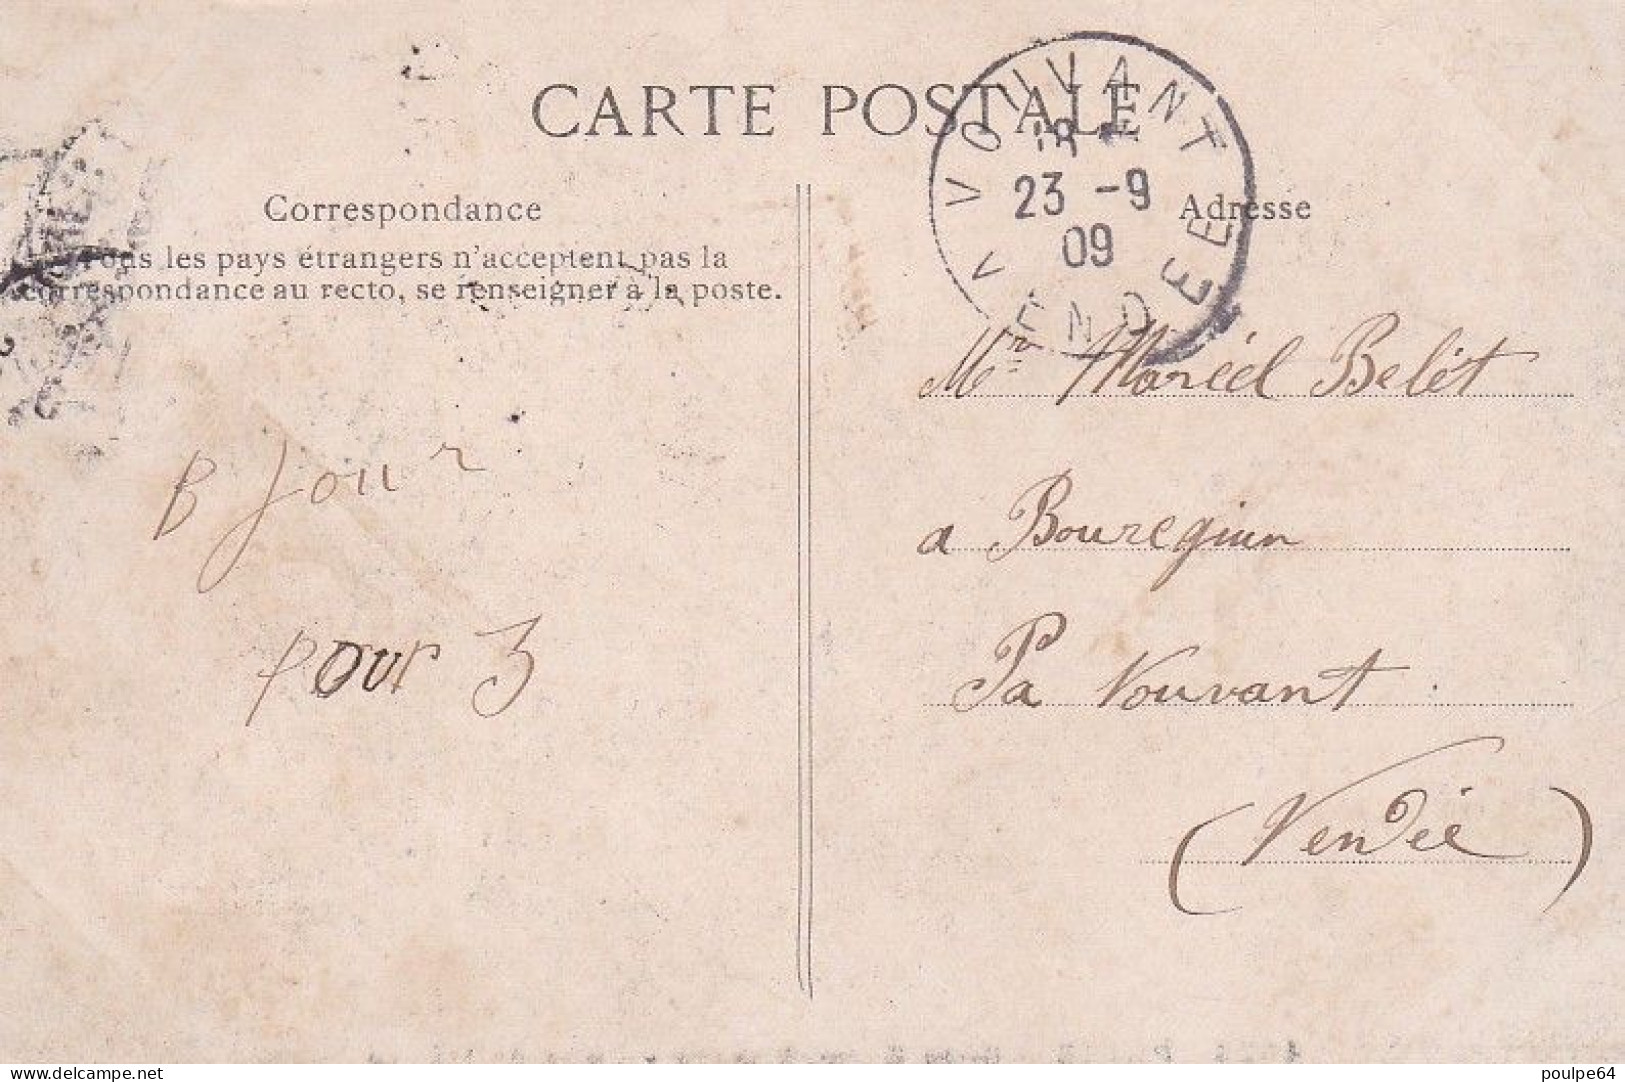 CARTE POSTALE
VOUVANT
23 -9
09
VENDÉE
Correspondance
Tous les pays étrangers n'acceptent pas la
correspondance au recto, se renseigner à la poste.
Adresse
Mr Marcel Belét
a Boureguin
Pa Vouvant
(Vendée)
B Jour
pour 3
delcampe.net
poulpe64